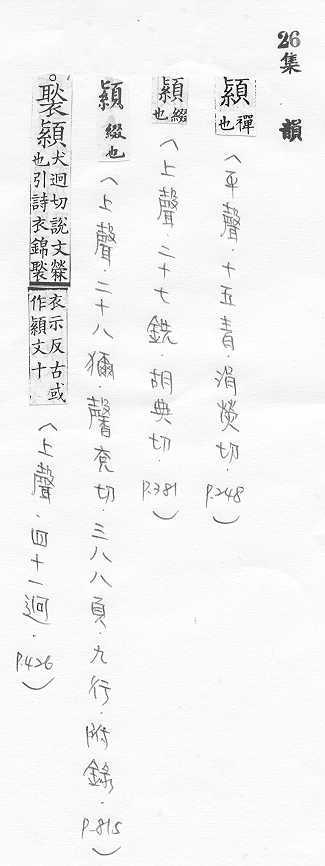 26集韻
顈襌也(平聲.十五青.涓熒切.P.248)
顈綴也(上聲.二十七銑.胡典切.P.381)
顈綴也(上聲.二十八獮.馨兖切.三八八頁.九行.附錄.P.815)
褧顈犬迥切說文檾也引詩衣錦褧衣示反古或作顈文十(上聲.四十一迥.P.426)